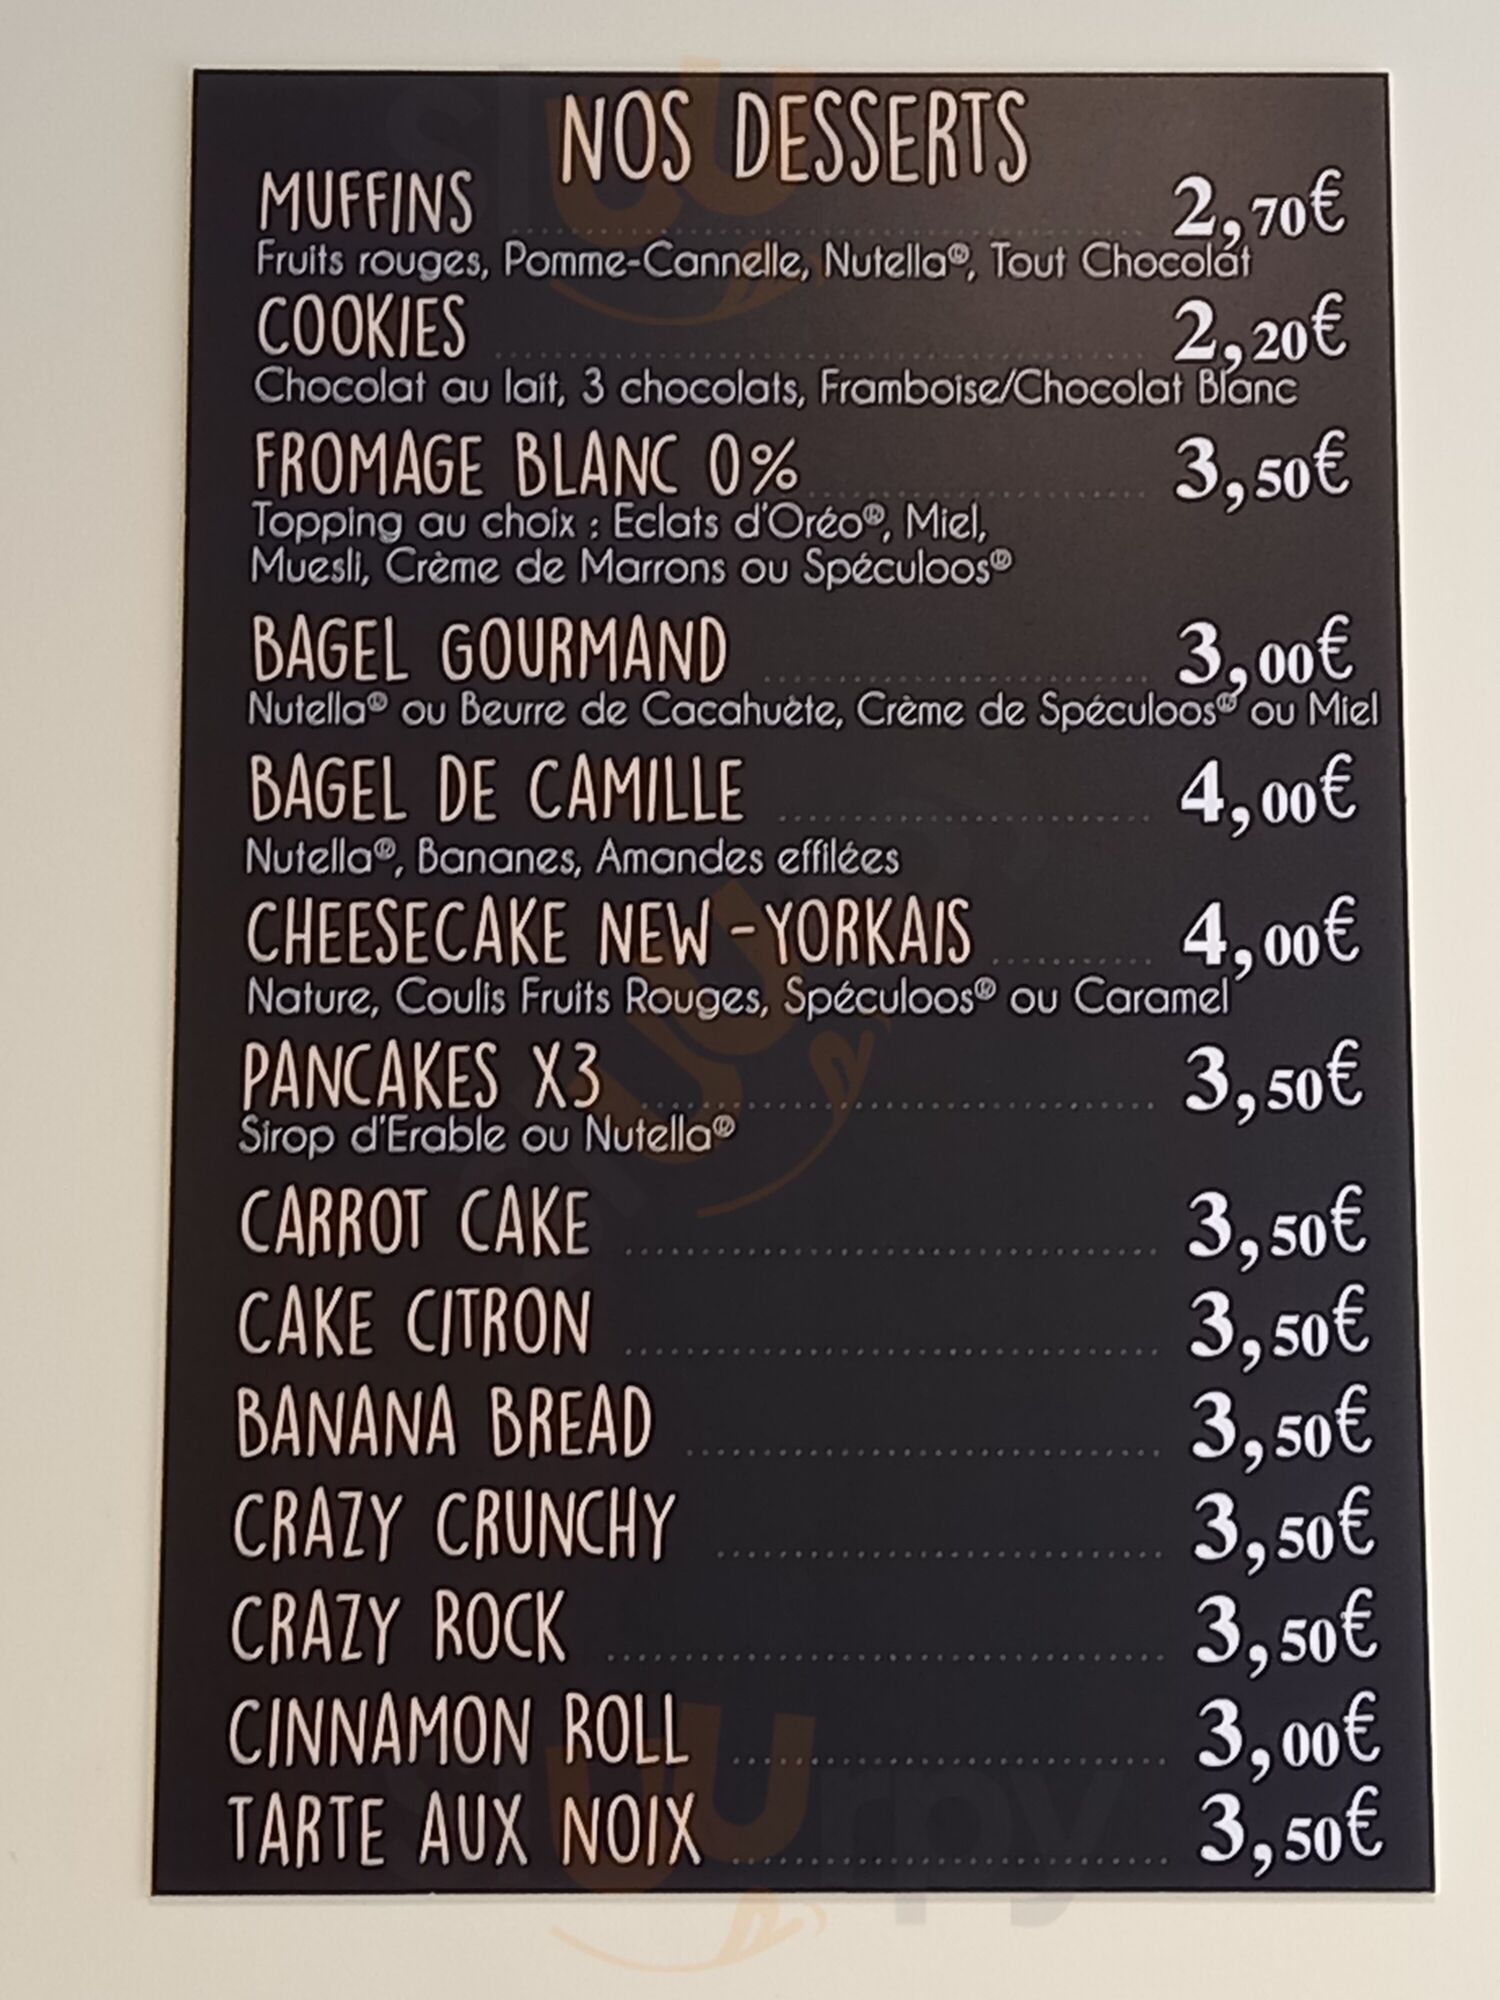 NOS DESSERTS
MUFFINS 2,70€
Fruits rouges, Pomme-Cannelle, Nutella®, Tout Chocolat
COOKIES 2,20€
Chocolat au lait, 3 chocolats, Framboise/Chocolat Blanc
FROMAGE BLANC 0% 3,50€
Topping au choix : Eclats d'Oréo®, Miel,
Muesli, Crème de Marrons ou Spéculoos®
BAGEL GOURMAND 3,00€
Nutella® ou Beurre de Cacahuète, Crème de Spéculoos® ou Miel
BAGEL DE CAMILLE 4,00€
Nutella®, Bananes, Amandes effilées
CHEESECAKE NEW-YORKAIS 4,00€
Nature, Coulis Fruits Rouges, Spéculoos® ou Caramel
PANCAKES X3 3,50€
Sirop d'Erable ou Nutella®
CARROT CAKE 3,50€
CAKE CITRON 3,50€
BANANA BREAD 3,50€
CRAZY CRUNCHY 3,50€
CRAZY ROCK 3,50€
CINNAMON ROLL 3,00€
TARTE AUX NOIX 3,50€